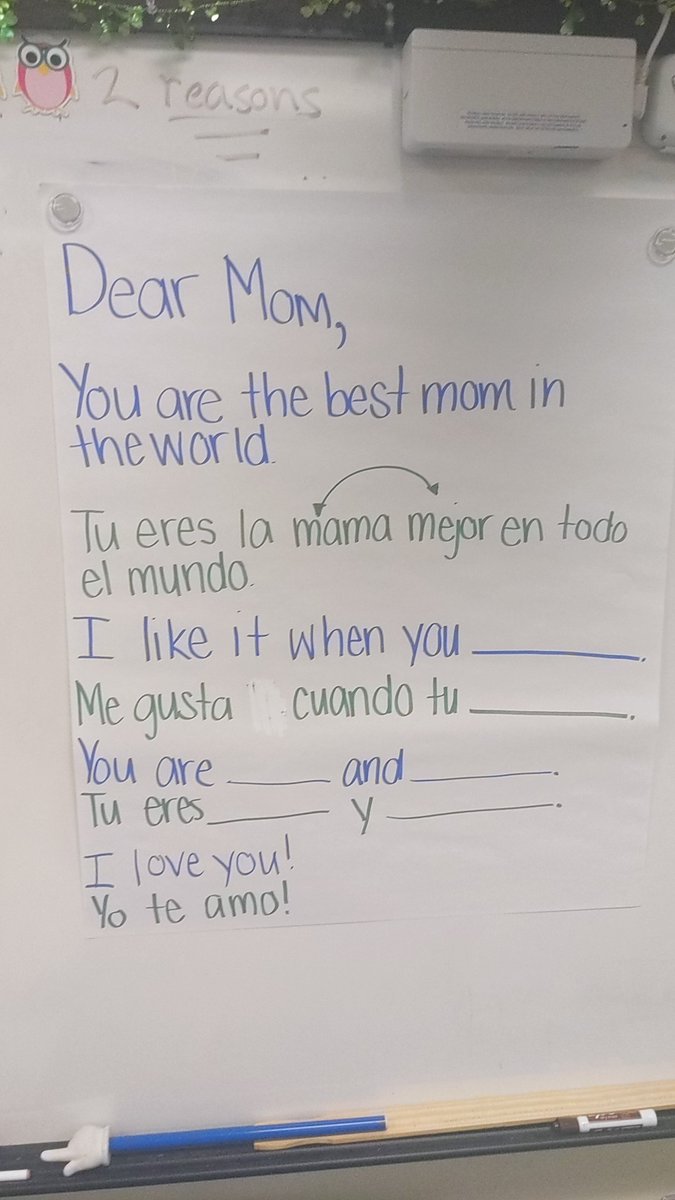 2 reasons
Dear Mom,
You are the best mom in
the world.
Tu eres la mama mejor en todo
el mundo.
I like it when you ______.
Me gusta cuando tu ______.
You are ______ and ______.
Tu eres ______ y ______.
I love you!
Yo te amo!